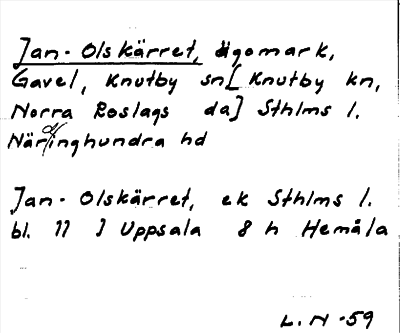 Jan-Olskärret, ägomark,
Gavel, Knutby sn[Knutby kn,
Norra Roslags da] Sthlms l.
Närdinghundra hd
Jan-Olskärret, ek Sthlms l.
bl. 77 J Uppsala 8 h Hemåla
L.N -59